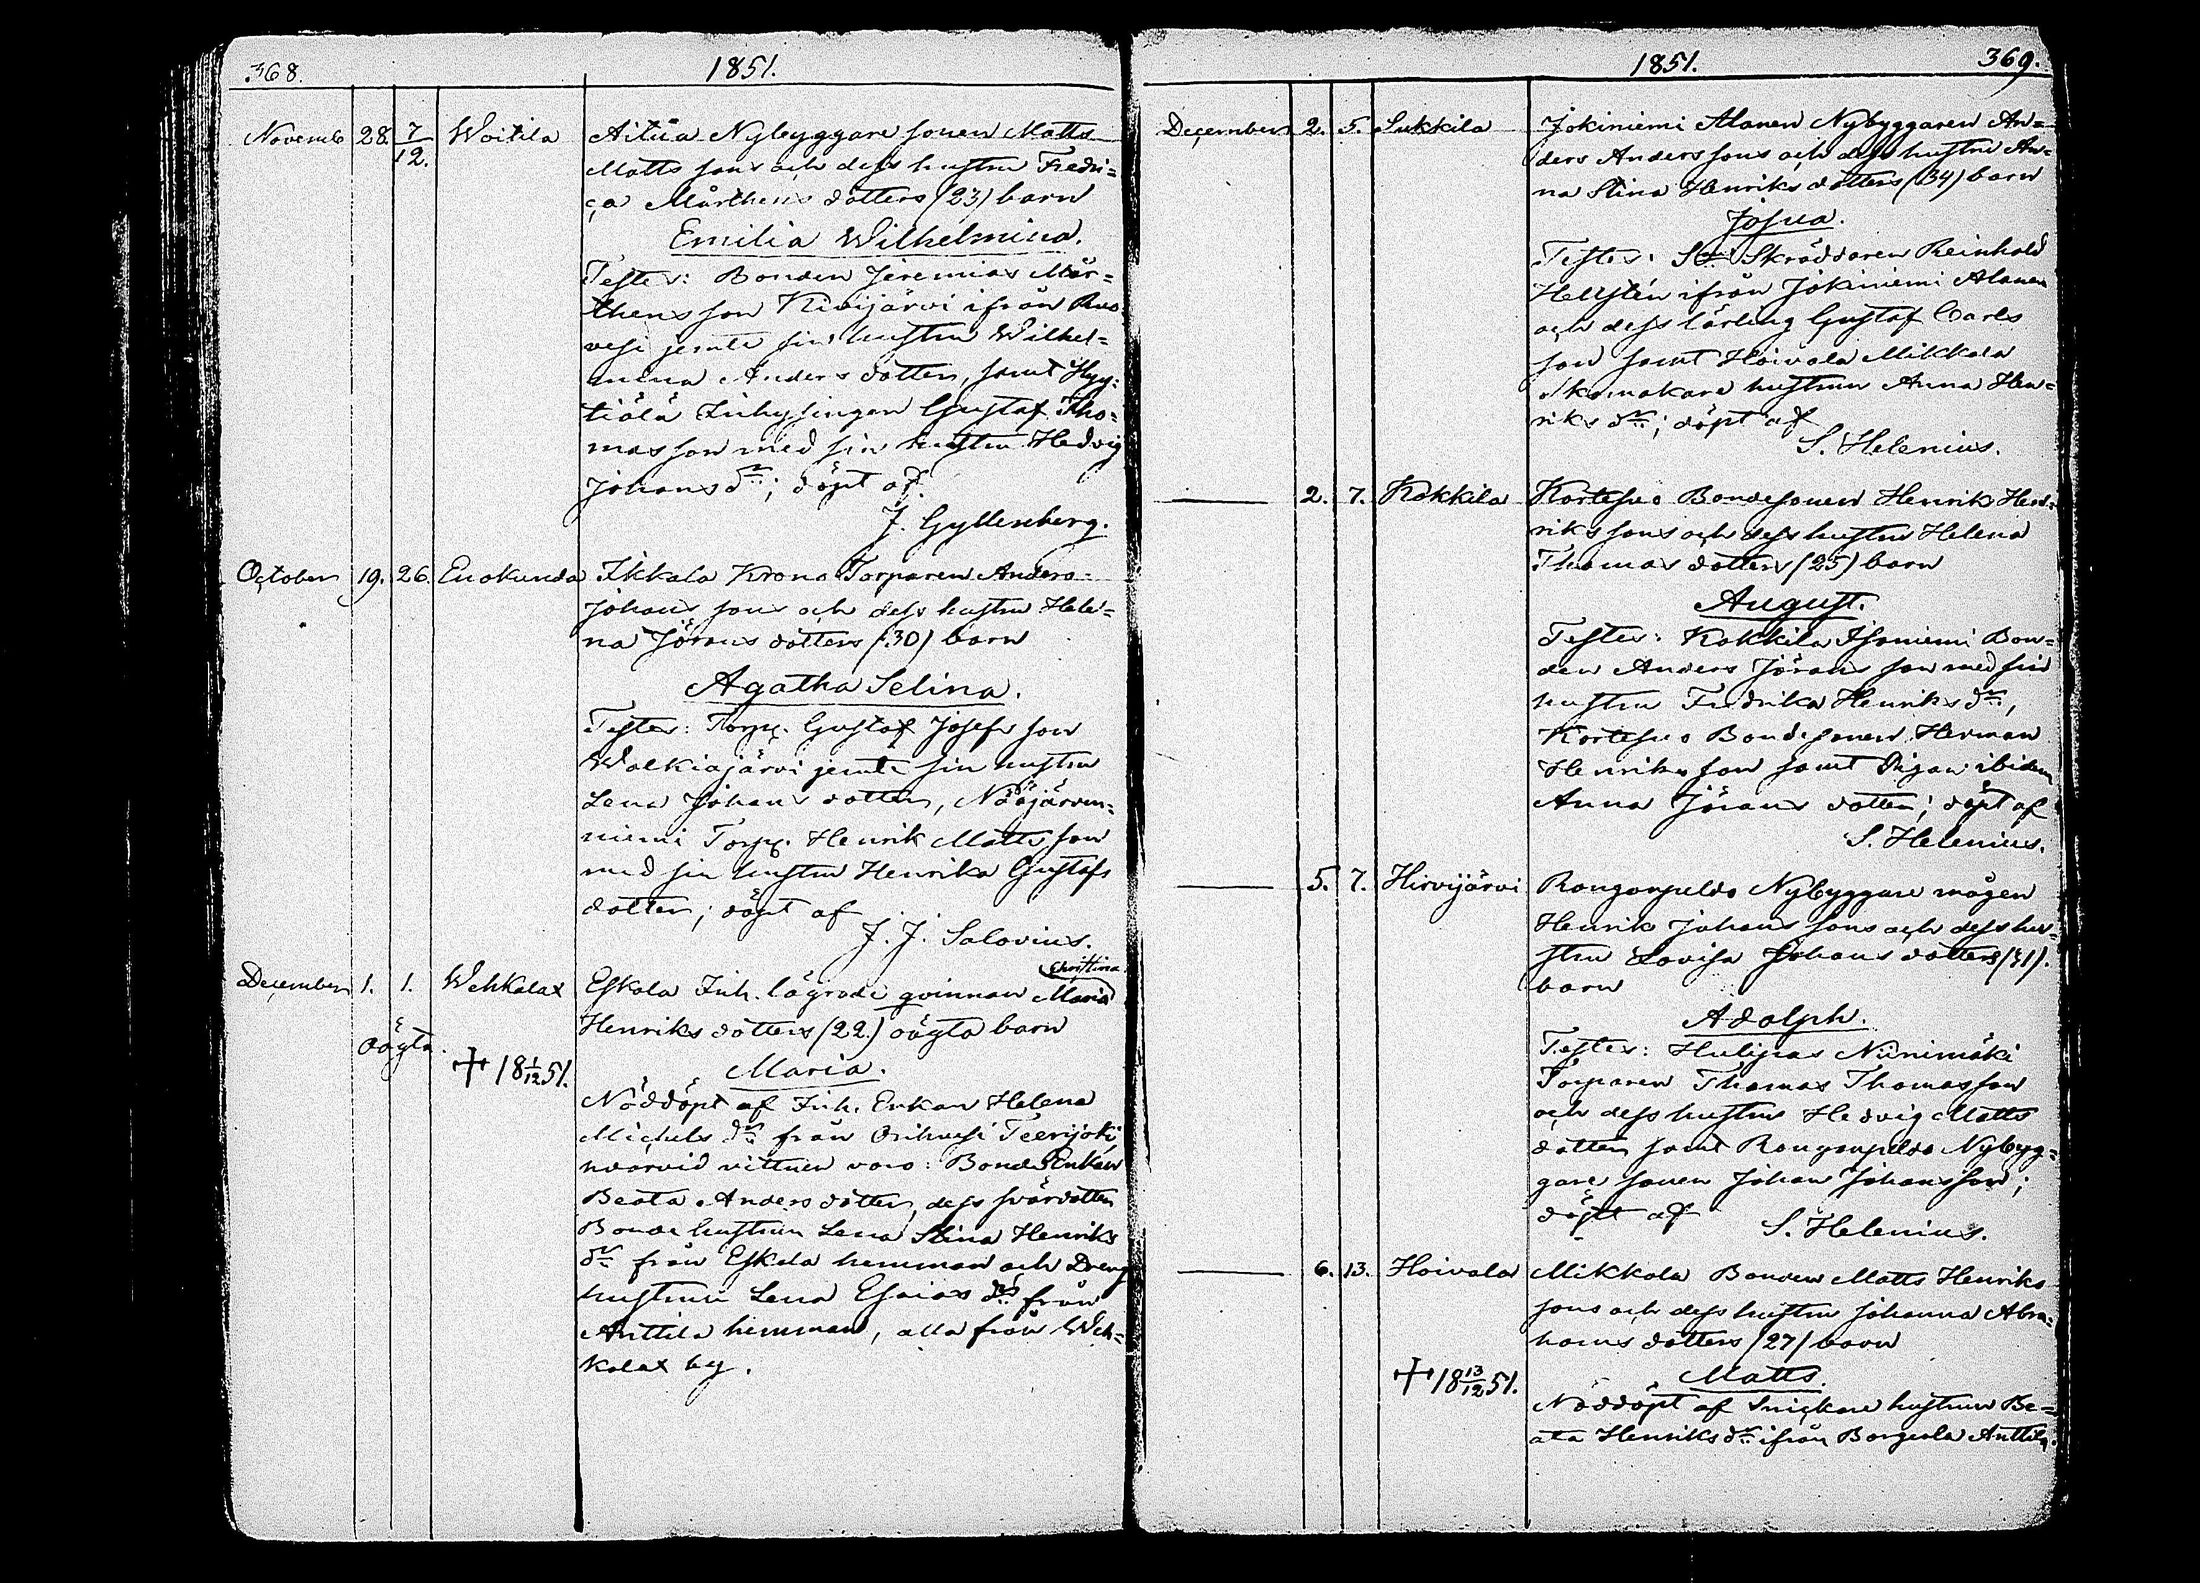 368.
1851.
Novemb 28. 7/12. Woitila Aitua Nybyggare sonen Matts
Matts sons och dess hustru Fredri=
ca Mårthens dotters (23) barn
Emilia Wilhelmina.
Testes: Bonden Jeremias Mår=
thens son Kivijärvi ifrån Ruo
vesi jemte sin hustru Wilhel=
mina Anders dotter, samt Hyy=
tiälä Inhysingen Gustaf Tho=
mas son med sin hustru Hedvig
Johans dr; döpt af
J. Gyllenberg.
October 19. 26. Enokunda Ikkala Krono Torparen Anders
Johans sons och dess hustru Hele=
na Jörans dotters (30) barn
Agatha Selina.
Testes: Torp. Gustaf Josefs son
Walkiajärvi jemte sin hustru
Lena Johans dotter, Nääjärven=
niemi Torp. Henrik Matts son
med sin hustru Henrika Gustafs
dotter; döpt af
J. J. Salovius.
Christina
December 1. 1. Wehkalax Eskola Inh. lägrade qvinnan Maria
Henriks dotters (22.) oägta barn
oägta.
Maria.
+ 18 1/12 51.
Nöddöpt af Inh. Enkan Helena
Michels dr från Orihvesi Teerijoki
hvarvid vittnen voro: Bonde Enkan
Beata Anders dotter, dess svärdotter
Bonde hustrun Lena Stina Henriks
dr från Eskola hemman och Dreng
hustrun Lena Esaias dr från
Anttila hemman, alla från Weh=
kalax by.
1851.
369.
December 2. 5. Sukkila Jokiniemi Alanen Nybyggaren An=
ders Anders sons och dess hustru An=
na Stina Henriks dotters (34) barn
Josua.
Testes: Skräddaren Reinhold
Hellstén ifrån Jokiniemi Alanen
och dess lärling Gustaf Carls
son samt Hoivala Mikkola
Skomakare hustrun Anna Hen=
riks dr; döpt af
S. Helenius.
2. 7. Kokkila Kortesuo Bondesonen Henrik Hend=
riks sons och dess hustru Helena
Thomas dotters (25) barn
August.
Testes: Kokkila Isoniemi Bon=
den Anders Jörans son med sin
hustru Fredrika Henriks dr,
Kortesuo Bondesonen Herman
Henriks son samt Pigan ibidem
Anna Jörans dotter; döpt af
S. Helenius.
5. 7. Hirvijärvi Rongonpeldo Nybyggare mågen
Henrik Johans sons och dess hu=
stru Lovisa Johans dotters (31).
barn
Adolph.
Testes: Hulipas Niinimäki
Torparen Thomas Thomasson
och dess hustru Hedvig Matts
dotter samt Rongonpeldo Nybyg=
gare sonen Johan Johansson;
döpt af S. Helenius.
6. 13. Hoivala Mikkola Bonden Matts Henriks
sons och dess hustru Johanna Abra=
hams dotters (27) barn
Matts.
+ 18 13/12 51.
Nöddöpt af Snickare hustrun Be=
ata Henriks dr ifrån Anttila